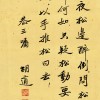 夜松邊醉倒問松
何如只疑松動要
以手推松曰去
胡適